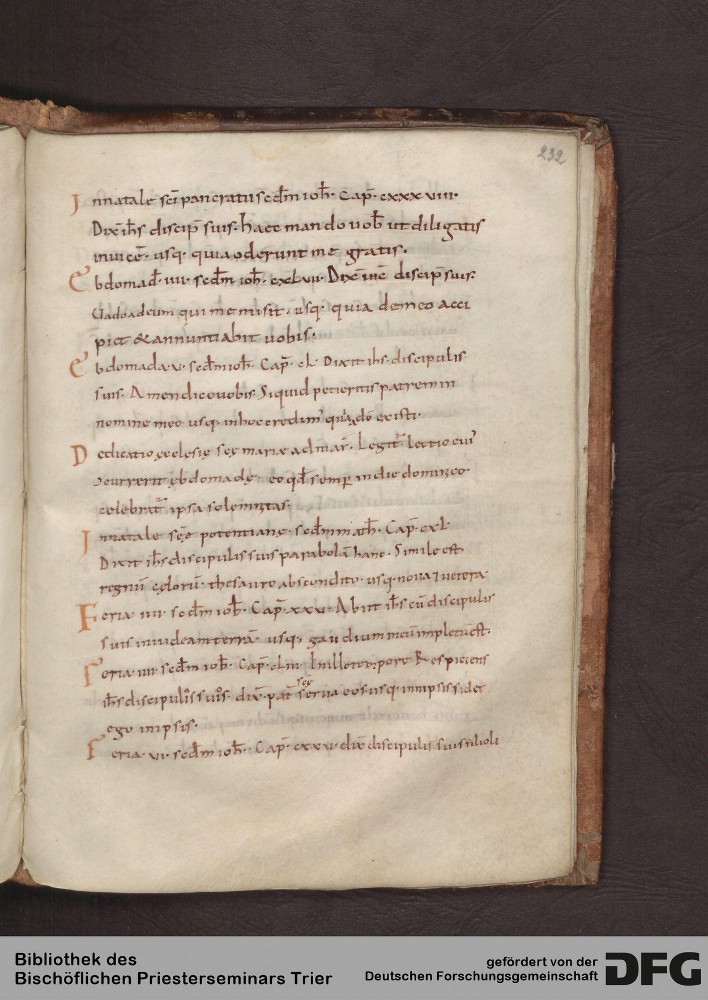 232
In natale sc̄i pancratii sec̄dm ioh̄. Cap̄. cxxxviiii.
Dix̄ ih̄s discip̄ suis. haec mando uob̄ ut diligatis
inuicē. usq; quia oderunt me gratis.
Ebdomad̄. iiii. sec̄dm ioh̄. cxlvii. Dix̄ ih̄c discip̄ suis.
Uado ad eum qui me misit. usq; quia de meo acci
piet & annuntiabit uobis.
Ebdomada. v. sec̄dm ioh̄. Cap̄. cl. Dixit ih̄s. discipulis
suis. Amen dico uobis. Si quid petieritis patrem in
nomine meo. usq; in hoc credim̄ quia a dō existi.
Dedicatio ęclesię sc̄ę mariæ ad mar̄. Legit̄ lectio cui᾽
occurrerit ębdomadę eo qd̄ semꝑ in die dominico
celebrat̄ ipsa solemnitas.
In natale sc̄ę potentianę. sec̄dm math̄. Cap̄. cxl.
Dixit ih̄s discipulis suis parabolā hanc. Simile est
regnū cęlorū. thesauro abscondito. usq; noua & uetera.
Feria. iiii. sec̄dm ioh̄. Cap̄. xxv. Abiit ih̄s cū discipulis
suis in iudeam terrā. usq; gaudium meū impletū est.
Feria. iiii. sec̄dm ioh̄. Cap̄. cliii. In illo tempore Respiciens
ih̄s discipulos suos. dix̄. pat̄ sc̄e serua eos. usq; in ipsis sit et
ego in ipsis.
Feria. vi. sec̄dm ioh̄. Cap̄. cxxv. dix̄ discipulis suis filioli
Bibliothek des
Bischöflichen Priesterseminars Trier
gefördert von der
Deutschen Forschungsgemeinschaft
DFG